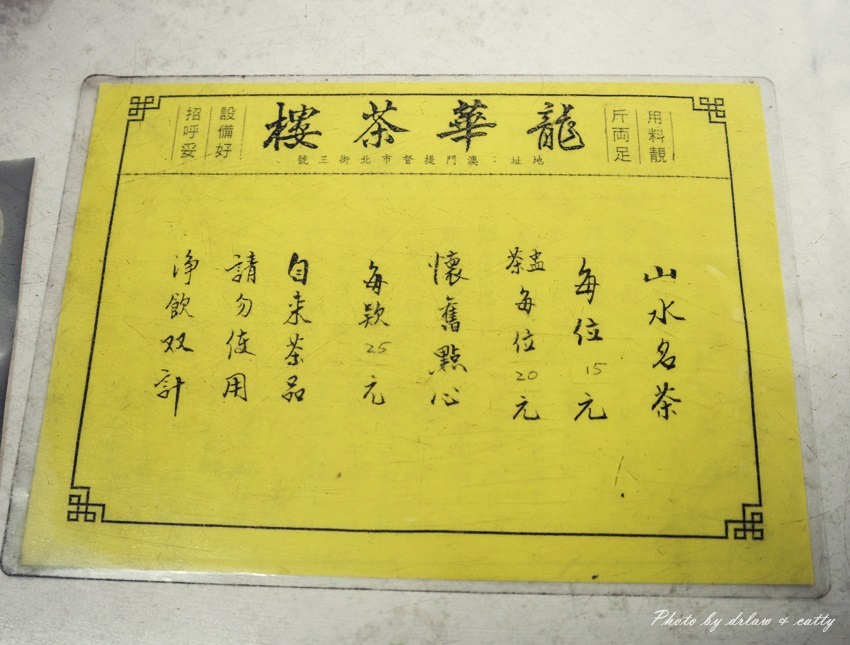 龍華茶樓
地址：澳門提督市北街三號
用料靚
斤両足
設備好
招呼妥
山水名茶
每位15元
茶盅每位20元
懷舊點心
每款25元
自来茶品
請勿使用
淨飲双計
Photo by drlaw & catty